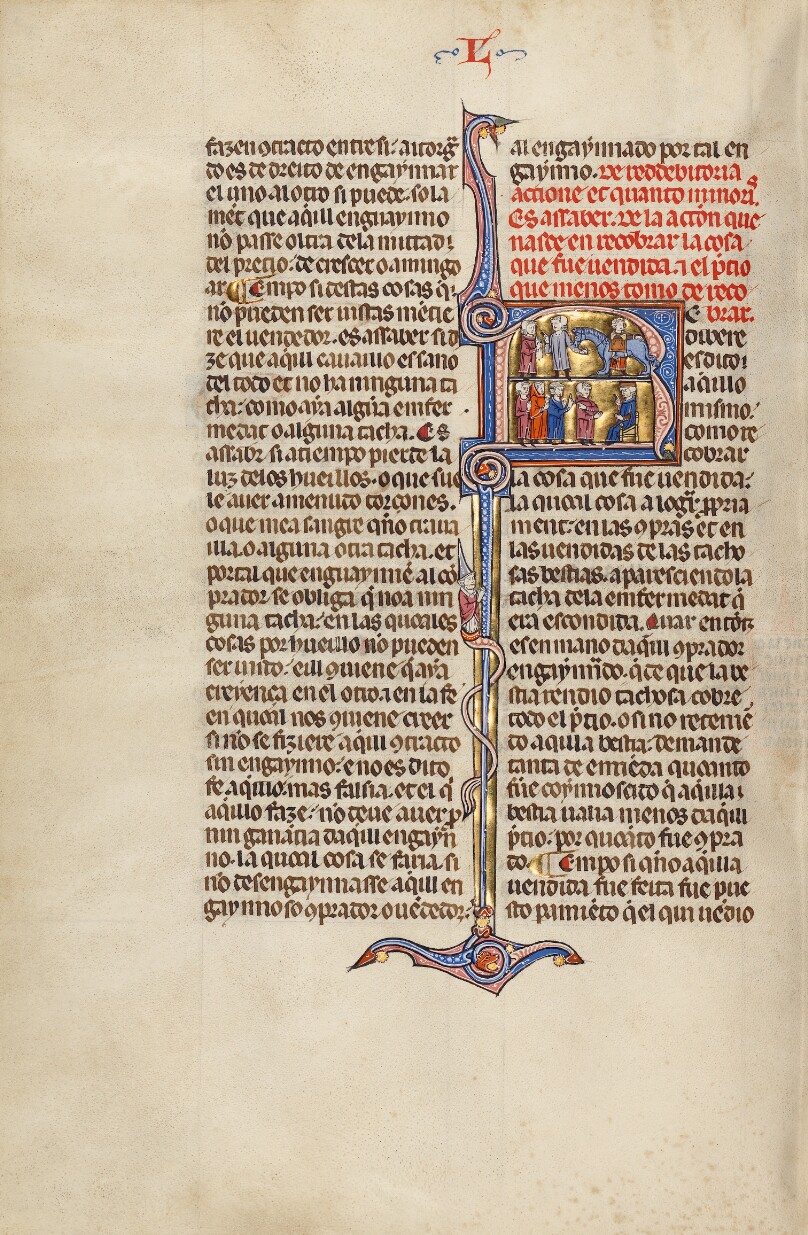 L
fazen ꝯtracto entre si: atorgã
do es de dreito de engaynnar
el uno al otro si puede. sola
mẽt que aq̃ill enguaynno
nõ passe oltra dela meitad:
del precio: de crescer o a mingo
ar. Empo si destas cosas q̃:
nõ pueden ser uistas mẽtie
re el uendedor. es assaber si di
ze que aq̃ill cauaillo es sano
del todo et no ha ninguna ta
cha: como aya alguna enfer
medat o alguna tacha. Es
assabr̃ si a tiempo pierde la
luz delos hueillos. o que sue
le auer a menudo torçones.
o que mea sangre q̃ño traua
illa. o alguna otra tacha. et
por tal que enguaynné al cõ
prador se obliga q̃ no a nin
guna tacha: en las quoales
cosas por hueillo nõ pueden
ser uisto: eill ꝯuiene q̃ aya
creyença en el otro. a en la fe
en quoal nos ꝯuiene creer
si nõ se fiziere aq̃ill ꝯtracto
sin engaynno: e no es dito
fe aq̃illo. mas falsia. et el q̃
aq̃illo faze: nõ deue auer ꝑ
nin ganãcia daq̃ill engayn
no. la quoal cosa se faria. si
nõ desengaynnasse aq̃ill en
gaynnoso ꝯprador o uẽdedor:
al engaynnado por tal en
gaynno. De reddebitoria
actione et quanto minori.
Es assaber. de la action que
nasce en recobrar la cosa
que fue uendida. ⁊ el p̃cio
que menos como de reco
brar.
diuere
es dito:
aq̃illo
mismo:
como re
cobrar
la cosa que fue uendida:
la quoal cosa a logr̃. ꝓpria
ment: en las ꝯpras et en
las uendidas de las tacho
sas bestias. aparesciendo la
tacha dela enfermedat q̃
era escondida. Quar entõz
es en mano daq̃ill ꝯprador
engaynñdo. q̃ de que la be
stia rendio tachosa cobre
todo el p̃cio. o si no reteniẽ
do aq̃illa bestia: demande
tanta de emẽda quoanto
fue coynnoscido q̃ aq̃illa:
bestia ualia menos daq̃ill
p̃cio: por quoãto fue ꝯpra
do. Empo si q̃ño aq̃illa
uendida fue feita fue pue
sto paramiẽto q̃ el qui uẽdio